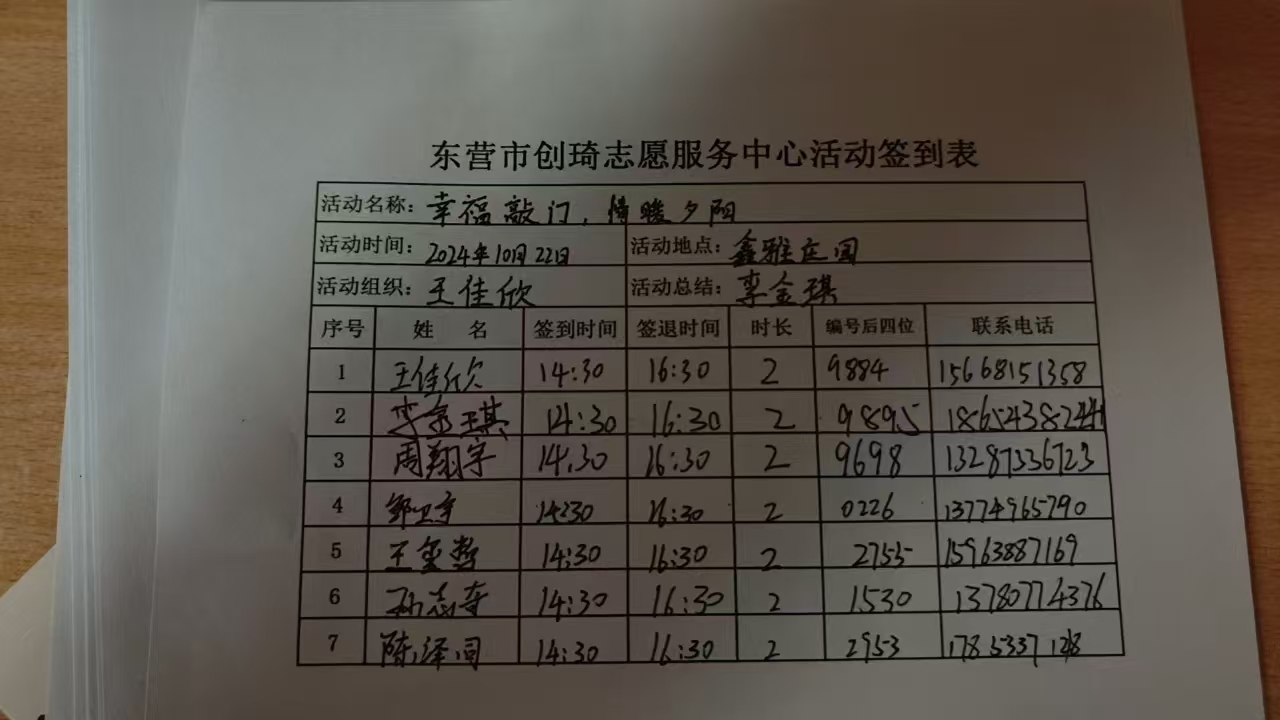 东营市创琦志愿服务中心活动签到表
活动名称：幸福敲门，情暖夕阳
活动时间：2024年10月22日 活动地点：鑫雅庄园
活动组织：王佳欣 活动总结：李金琪
序号 姓 名 签到时间 签退时间 时长 编号后四位 联系电话
1 王佳欣 14:30 16:30 2 9884 15668151358
2 李金琪 14:30 16:30 2 9895 18654388244
3 周翔宇 14:30 16:30 2 9698 13287336723
4 邹卫宇 14:30 16:30 2 0226 13774965790
5 14:30 16:30 2 2755 15963887169
6 孙志奇 14:30 16:30 2 1530 13780774376
7 陈泽同 14:30 16:30 2 2953